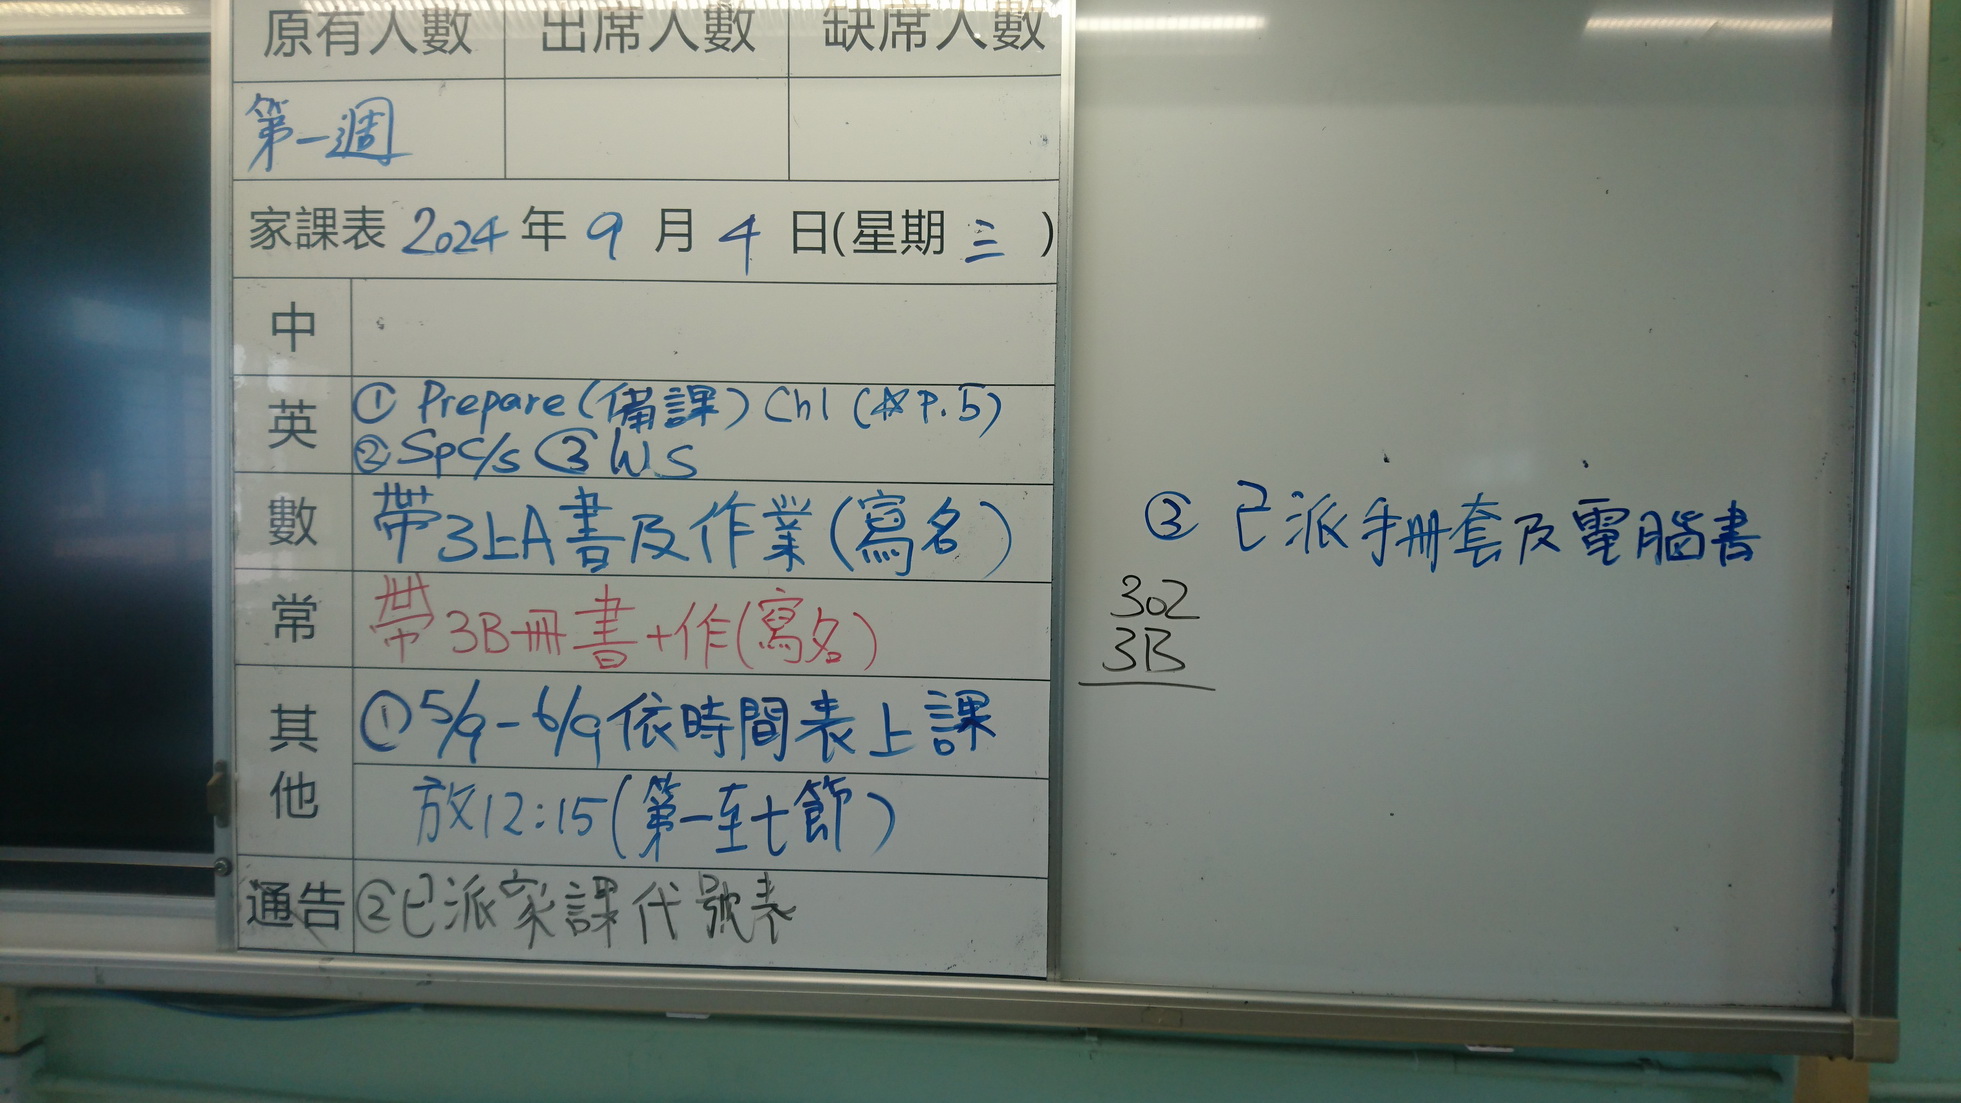 原有人數 出席人數 缺席人數
第一週
家課表 2024 年 9 月 4 日(星期 三 )
中
英 ① Prepare (備課) Ch1 (☆P.5)
② Spc/s ③ WS
數 帶3上A書及作業(寫名)
常 帶3B冊書+作(寫名)
其他 ① 5/9 - 6/9 依時間表上課
放12:15(第一至七節)
通告 ②已派家課代號表
③ 已派手冊套及電腦書
302
3B